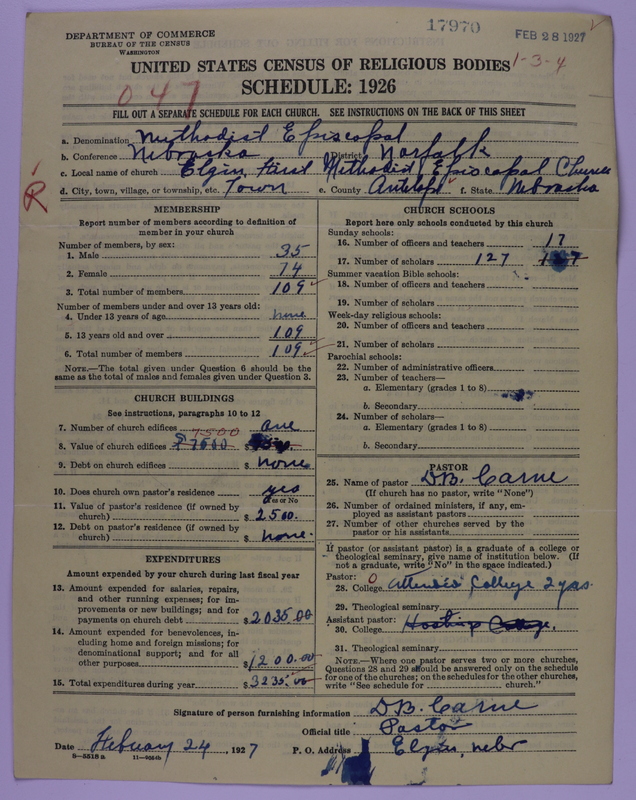 17970
FEB 28 1927
DEPARTMENT OF COMMERCE
BUREAU OF THE CENSUS
WASHINGTON
UNITED STATES CENSUS OF RELIGIOUS BODIES
1-3-4
SCHEDULE: 1926
047
FILL OUT A SEPARATE SCHEDULE FOR EACH CHURCH. SEE INSTRUCTIONS ON THE BACK OF THIS SHEET
a. Denomination Methodist Episcopal
b. Conference Nebraska District Norfolk
c. Local name of church Elgin First Methodist Episcopal Church
d. City, town, village, or township, etc. Town e. County Antelope f. State Nebraska
R
MEMBERSHIP
Report number of members according to definition of
member in your church
Number of members, by sex:
1. Male 35
2. Female 74
3. Total number of members 109
Number of members under and over 13 years old:
4. Under 13 years of age none
5. 13 years old and over 109
6. Total number of members 109
NOTE.—The total given under Question 6 should be
same as the total of males and females given under Question 3.
CHURCH BUILDINGS
See instructions, paragraphs 10 to 12
7. Number of church edifices one
7500
8. Value of church edifices $ 7500 $
9. Debt on church edifices $ none
10. Does church own pastor's residence yes
Yes or No
11. Value of pastor's residence (if owned by
church) $ 2500.
12. Debt on pastor's residence (if owned by
church) $ none.
EXPENDITURES
Amount expended by your church during last fiscal year
13. Amount expended for salaries, repairs,
and other running expenses; for im-
provements or new buildings; and for
payments on church debt $ 2035.00
14. Amount expended for benevolences, in-
cluding home and foreign missions; for
denominational support; and for all
other purposes $ 1200.00
15. Total expenditures during year $ 3235.00
CHURCH SCHOOLS
Report here only schools conducted by this church
Sunday schools:
16. Number of officers and teachers 17
17. Number of scholars 127
Summer vacation Bible schools:
18. Number of officers and teachers
19. Number of scholars
Week-day religious schools:
20. Number of officers and teachers
21. Number of scholars
Parochial schools:
22. Number of administrative officers
23. Number of teachers—
a. Elementary (grades 1 to 8)
b. Secondary
24. Number of scholars—
a. Elementary (grades 1 to 8)
b. Secondary
PASTOR
25. Name of pastor DB. Carne
(If church has no pastor, write "None")
26. Number of ordained ministers, if any, em-
ployed as assistant pastors
27. Number of other churches served by the
pastor or his assistants
If pastor (or assistant pastor) is a graduate of a college or
theological seminary, give name of institution below. (If
not a graduate, write "No" in the space indicated.)
Pastor: 0
28. College attended College 2 yrs.
29. Theological seminary
Assistant pastor:
30. College Hastings College.
31. Theological seminary
NOTE.—Where one pastor serves two or more churches,
Questions 28 and 29 should be answered only on the schedule
for one of the churches; on the schedules for the other churches,
write "See schedule for church."
Signature of person furnishing information DB. Carne
Official title Pastor
Date February 24, 1927 P. O. Address Elgin, Nebr
8—5518 a 11—9554b